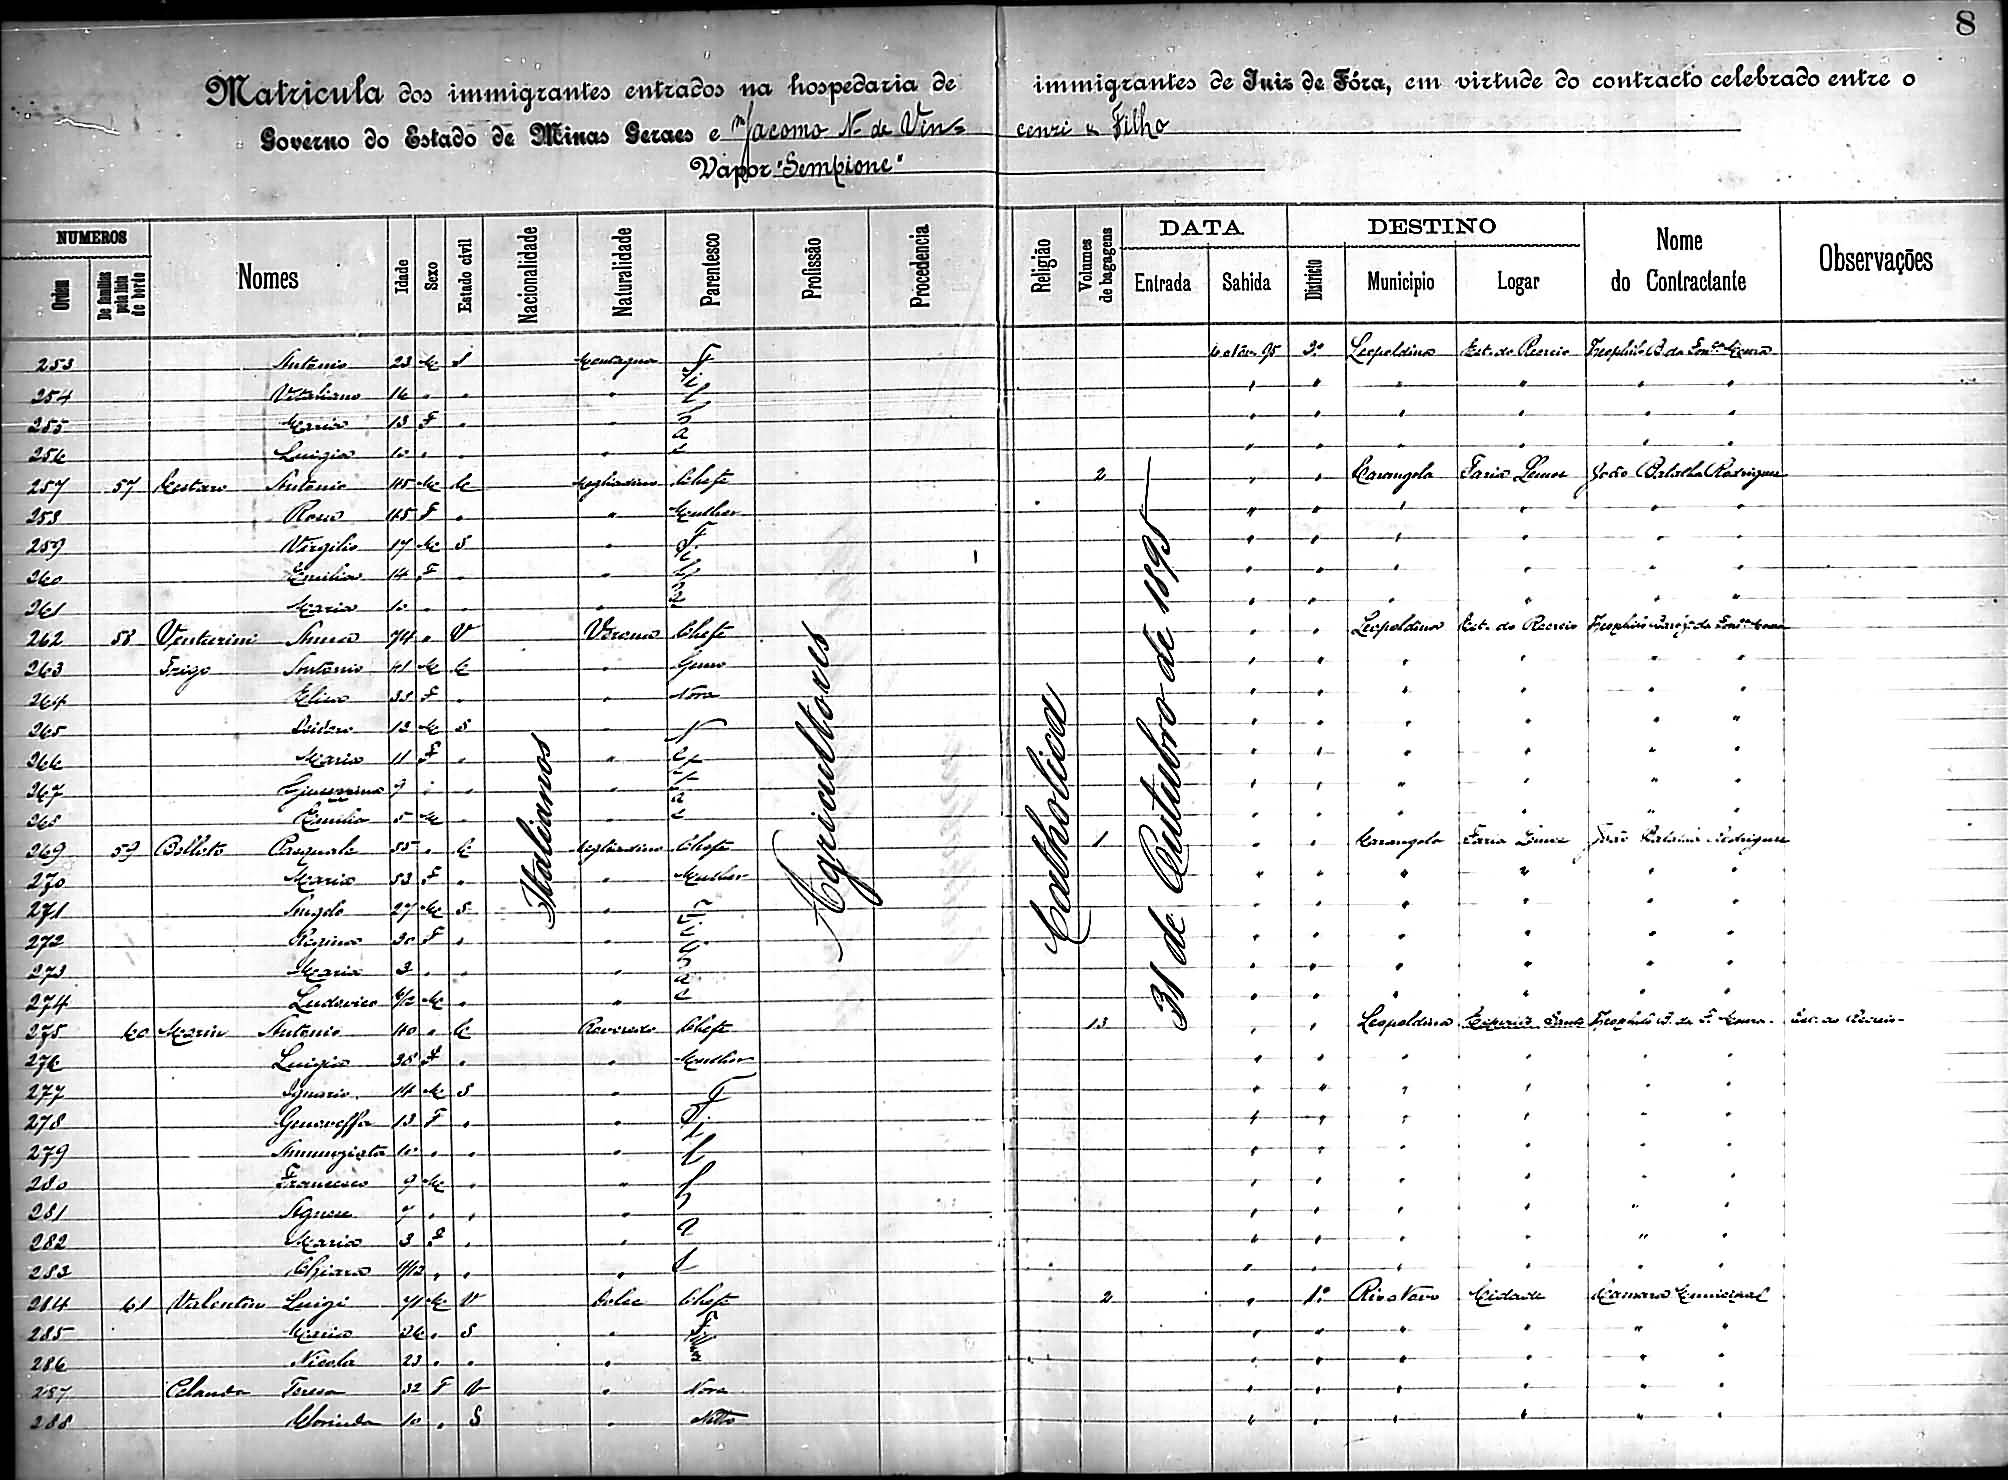 8
Matricula dos immigrantes entrados na hospedaria de immigrantes de Juiz de Fóra, em virtude do contracto celebrado entre o
Governo do Estado de Minas Geraes e Jacomo N. de Vincenzi & Filho
Vapor "Sempione"
NUMEROS DATA DESTINO
Ordem De familias pela lista de bordo Nomes Idade Sexo Estado civil Nacionalidade Naturalidade Parentesco Profissão Procedencia Religião Volumes de bagagens Entrada Sahida Districto Municipio Logar Nome do Contractante Observações
Italianos
Agricultores
Catholica
31 de Outubro de 1895
253 Antonio 23 M S Montagnana 95 2º Leopoldina Est. do Recreio
254 Vitaliano 16 " " " " " " " "
255 Maria 13 F " " " " " " "
256 Luigia 10 " " " " " " " "
257 57 Antonio 45 M C Megliadino Chefe 2 " " Carangola Faria Lemos João Batalha Rodrigues
258 Rosa 45 F " " Mulher " " " " "
259 Virgilio 17 M S " " " " " "
260 Emilia 14 F " " " " " " "
261 Maria 10 " " " " " " " "
262 58 Venturini Anna 74 " V Verona Chefe " " Leopoldina Est. do Recreio
263 Frigo Antonio 41 M C " Genro " " " " "
264 Elisa 33 F " " Nora " " " " "
265 12 M S " " " " " "
266 Maria 11 F " " " " " " "
267 9 " " " " " " " "
268 Emilio 5 M " " " " " " "
269 59 Belloto Pasquale 55 " C Megliadino Chefe 1 " " Carangola Faria Lemos João Batalha Rodrigues
270 Maria 53 F " " Mulher " " " " "
271 Angelo 27 M S " " " " " "
272 Regina 20 F " " " " " " "
273 Maria 3 " " " " " " " "
274 Ludovico M " " " " " " "
275 60 Marin Antonio 40 " C Chefe 13 " " Leopoldina Est. do Recreio
276 Luigia 38 F " " Mulher " " " " "
277 14 M S " " " " " "
278 Genoveffa 13 F " " " " " " "
279 Annunziata 10 " " " " " " " "
280 Francesco 9 M " " " " " " "
281 Agnese 7 " " " " " " " "
282 Maria 3 F " " " " " " "
283 Chiara " " " " " " " "
284 61 Valentin Luigi 71 M V Dolce Chefe 2 " 1º Rio Novo Cidade Camara Municipal
285 " S " " " " " "
286 Nicola 23 " " " " " " " "
287 Teresa 32 F V " Nora " " " " "
288 Clorinda 10 " S " Netto " " " " "